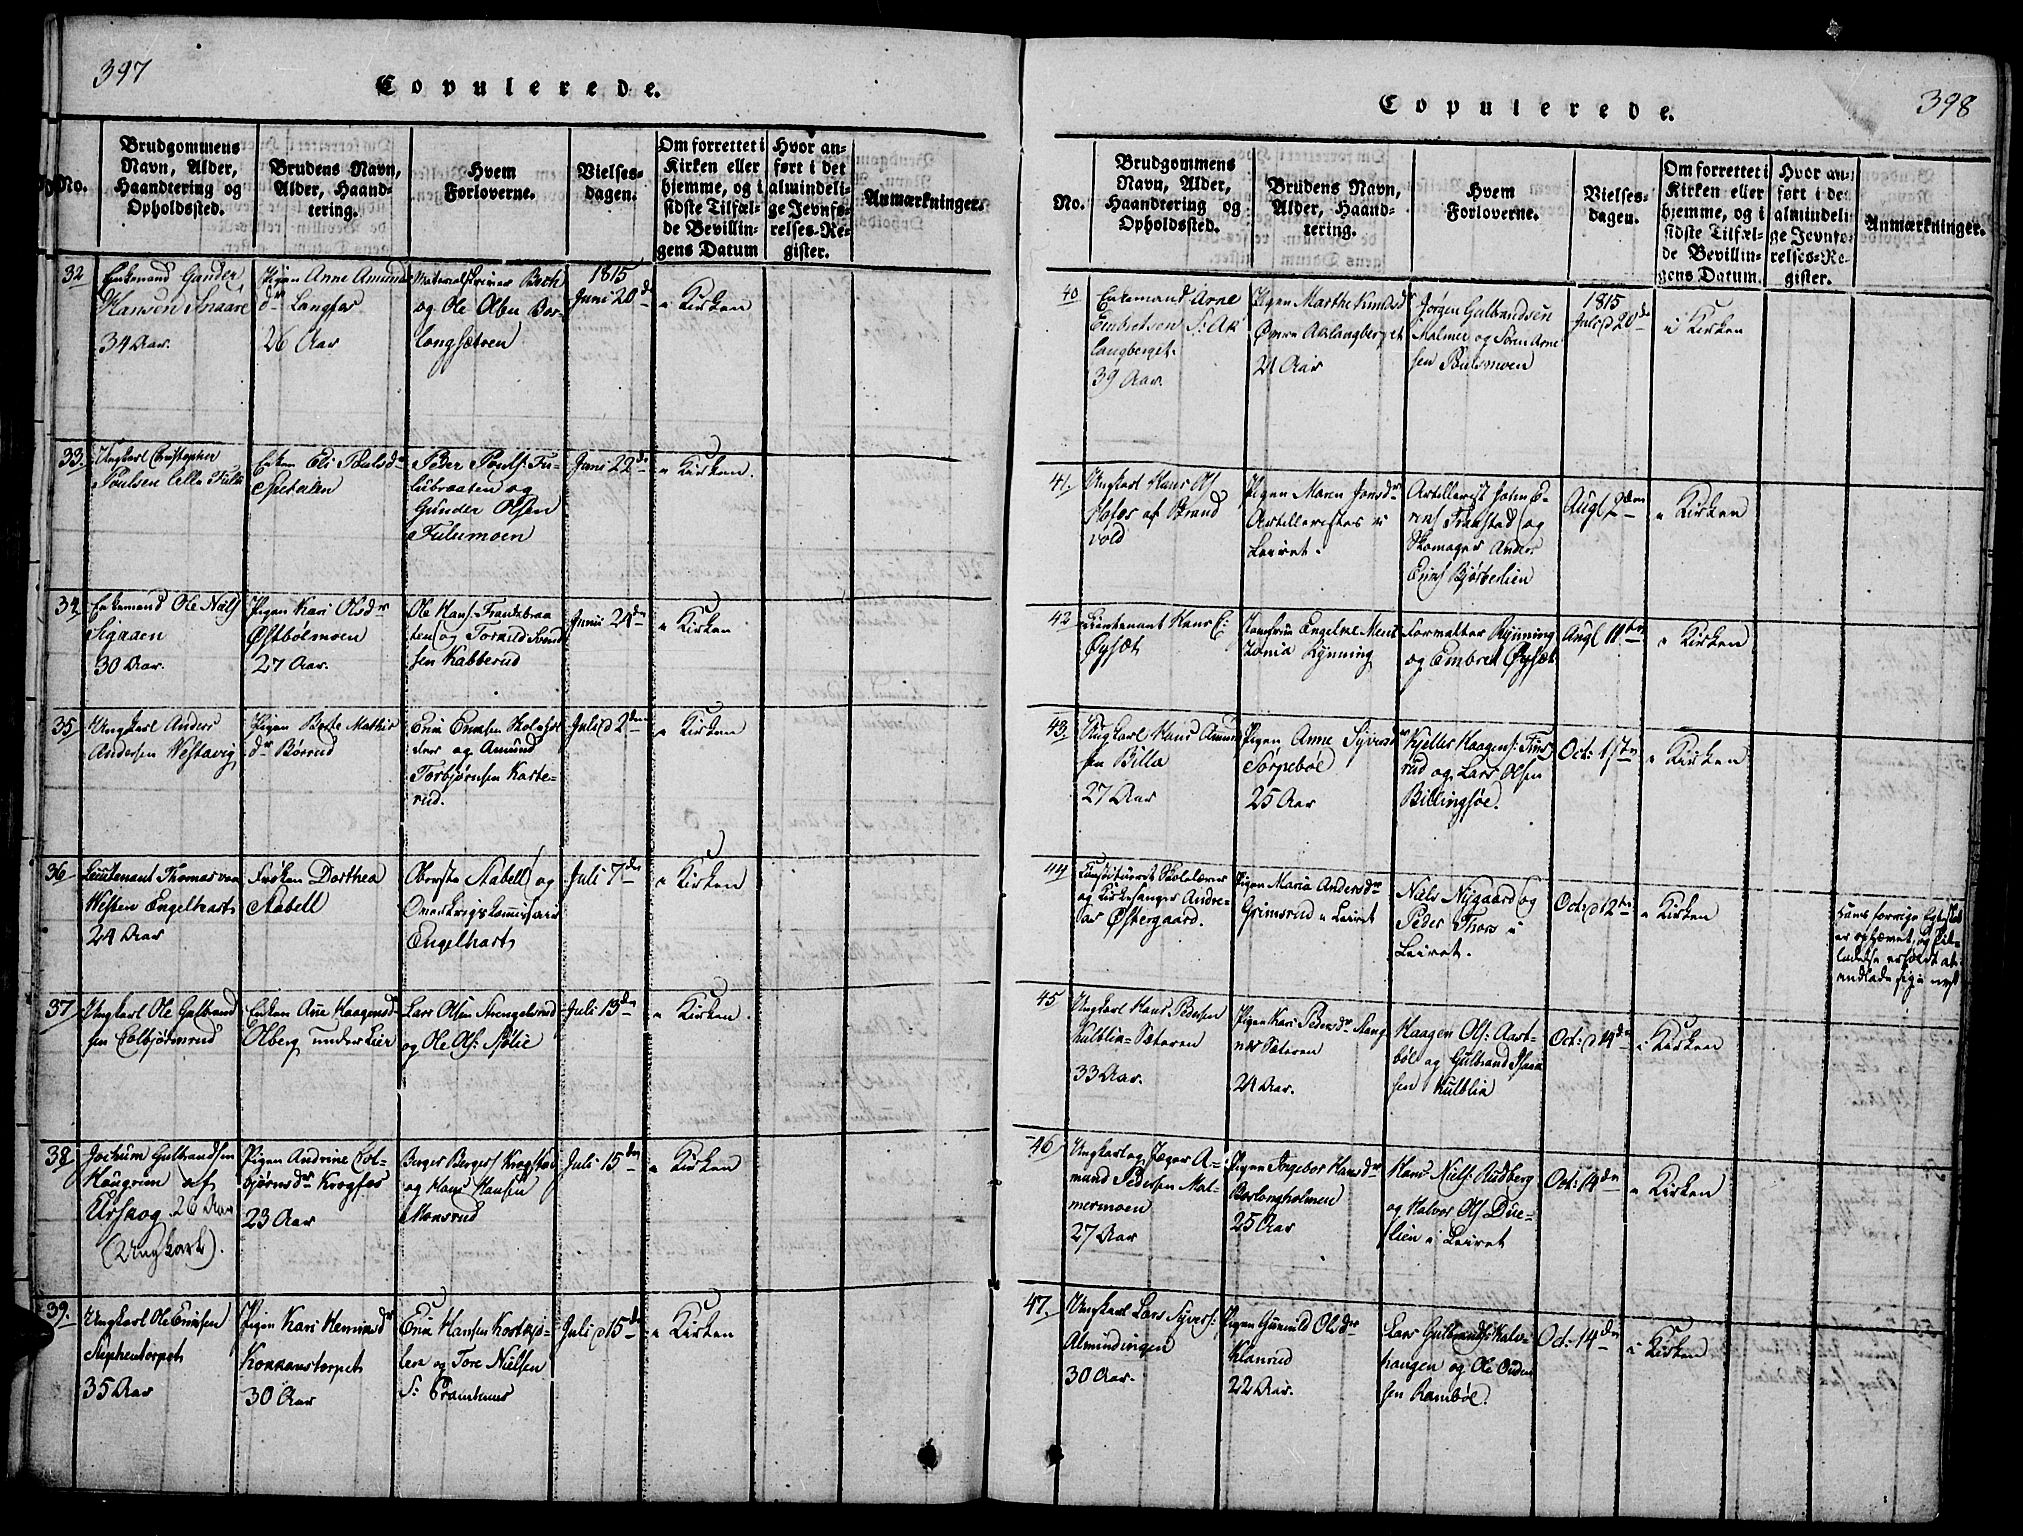 397
Copulerede.
No.
Brudgommens
Navn, Alder,
Haandtering og
Opholdssted.
Brudens Navn,
Alder, Haand-
tering.
Hvem
Forloverne.
Vielses-
dagen.
Om forrettet i
Kirken eller
hjemme, og i
sidste Tilfæl-
de Bevillin-
gens Datum
Hvor an-
ført i det
almindeli-
ge Jevnfø-
relses-Re-
gister.
Anmærkninger.
32
Enkemand Gunder
Hansen Snaare
34 Aar.
Pigen Anne Amunds
dr Langfos
26 Aar
og Ole Olsen Bor-
longsætren
1815
Juni 20 d
i Kirken
33.
Ungkarl Christopher
Poulsen
Enken Eli Poulsdr
Spetalen
Peder Pouls Fu-
lubraaten og
Gunder Olsen
Fulumoen
Juni 22 de
i Kirken
34
Enkemand Ole Niels
Sigaaen
30 Aar.
Pigen Kari Olsdr
Østbølmoen
27 Aar.
Ole Hans. Frantzbraa
ten og Torkild Svend
sen Kabberud
Junii 24 de
i Kirken
35
Ungkarl Anders
Andersen Vestavig
Pigen Berte Mathis
dr Børrud
og Amund
Torbjørnsen Karte-
rud.
Juli 2 den
i Kirken
36
Lieutenant Thomas von
Westen Engelhart
24 Aar
Frøken Dorthea
Stabell
Oberste Stabell og
Overkrigskommissair
Engelhart
Juli 7 de
i Kirken
37
Ungkarl Ole Gulbrand
sen Colbjørnsrud
Enken Ane Haagensdr
Olberg under Lier
Lars Olsen Strengelsrud
og Ole Ols: Sølie
Juli 13 de
i Kirken
38
Jochum Gulbrandsen
Haugrim af
Urskog 26 Aar
(Ungkarl).
Pigen Andrine Col-
bjørnsdr Krogfos
23 Aar
Berger Bergers Krogfos
og Hans Hansen
Monsrud
Juli 15 de
i Kirken
39.
Ungkarl Ole Ericksen
Stephentorpet
35 Aar
Pigen Kari Henricsdr
Korranstorpet
30 Aar
Eric Hansen
og Tore Nielsen
Juli 15 de
i Kirken
398
Copulerede.
No.
Brudgommens
Navn, Alder,
Haandtering og
Opholdssted.
Brudens Navn,
Alder, Haand-
tering.
Hvem
Forloverne.
Vielses-
dagen.
Om forrettet i
Kirken eller
hjemme, og i
sidste Tilfæl-
de Bevillin-
gens Datum.
Hvor an-
ført i det
almindeli-
ge Jevnfø-
relses-Re-
gister.
Anmærkninger.
40
Enkemand Arne
Embretsen S: Ak
langberget.
39 Aar.
Pigen Marthe Knudsdr
Øvre Aklangberget
21 Aar
Jørgen Gulbrandsen
Malmer og Søren Arne
sen Poulsmoen
1815
Juli 20 de
i Kirken
41.
Ungkarl Hans Ols
af Strand
vold
Pigen Maren Jonsdr
Artilleristes i
Leiret.
Artillerist John E-
Transtad og
Skomager Anders
Erics Bjørbeslien
Aug 2 den
i Kirken
42
Lieutenant Hans E:
Øysæt
Jomfrue Engelke
Rynning
Forvalter Rynning
og Embret Øysæt
Aug 11 ten
i Kirken
43.
Ungkarl Hans Amund
sen Billa
27 Aar
Pigen Anne Syversdr
Torpeboe
25 Aar
Kjeller Haagens:
rud og Lars Olsen
Billingsøe.
Oct: 1 ste
i Kirken
44
Constitueret Skolelærer
og Kirkesanger Andre-
as Østergaard.
Pigen Maria Andersdr
Grimsrud i Leiret
Niels Nygaard og
Peder Thors i
Leiret.
Oct: 12 te
i Kirken
Hans forrige Egteskab
er ophævet, og Til-
ladelse erholdt at
indlade sig i nyt
45
Ungkarl Hans Pedersen
Kulblia-Sæteren
33 Aar.
Pigen Kari Pedersdr Stang
næs Sæteren
24 Aar.
Haagen Ols: Aart-
bøl og Gulbrand
sen Kulblia
Oct: 14 de
i Kirken
46
Ungkarl og Jæger A-
mund Pedersen Mal-
mermoen
27 Aar
Pigen Ingebor Hansdr
Borlongholmen
25 Aar
Hans Niels: Rudberg
og Halvor Ols Due-
lien i Leiret
Oct: 14 de
i Kirken
47.
Ungkarl Lars Syvers:
Almindingen
30 Aar.
Pigen Gunild Olsdr
Klanrud
22 Aar.
Lars Gulbrands: Kalv-
hangen og Ole
sen Rambøl
Oct: 14 de
i Kirken